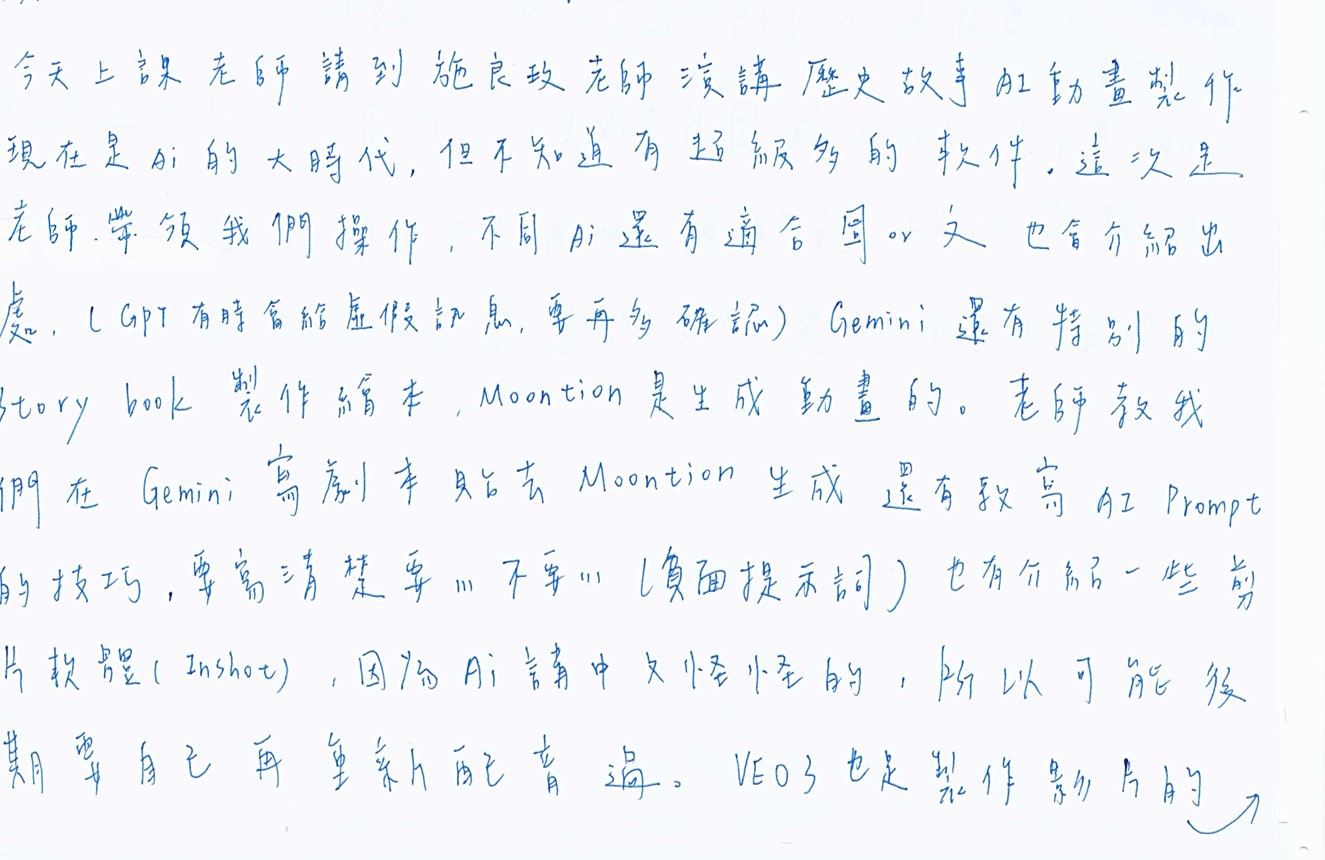 今天上課老師請到施良玫老師演講歷史故事AI動畫製作
現在是Ai的大時代,但不知道有超級多的軟件.這次是
老師帶領我們操作,不同Ai還有適合圖or文 也會介紹出
處.(GPT有時會給虛假訊息,要再多確認) Gemini還有特別的
Story book 製作繪本,Moontion是生成動畫的。老師教我
們在Gemini寫劇本貼去Moontion生成 還有教寫AI Prompt
的技巧,要寫清楚要… 不要…(負面提示詞) 也有介紹一些剪
片軟體(Inshot),因為Ai講中文怪怪的,所以可能後
期要自己再重新配音過。VEO3也是製作影片的